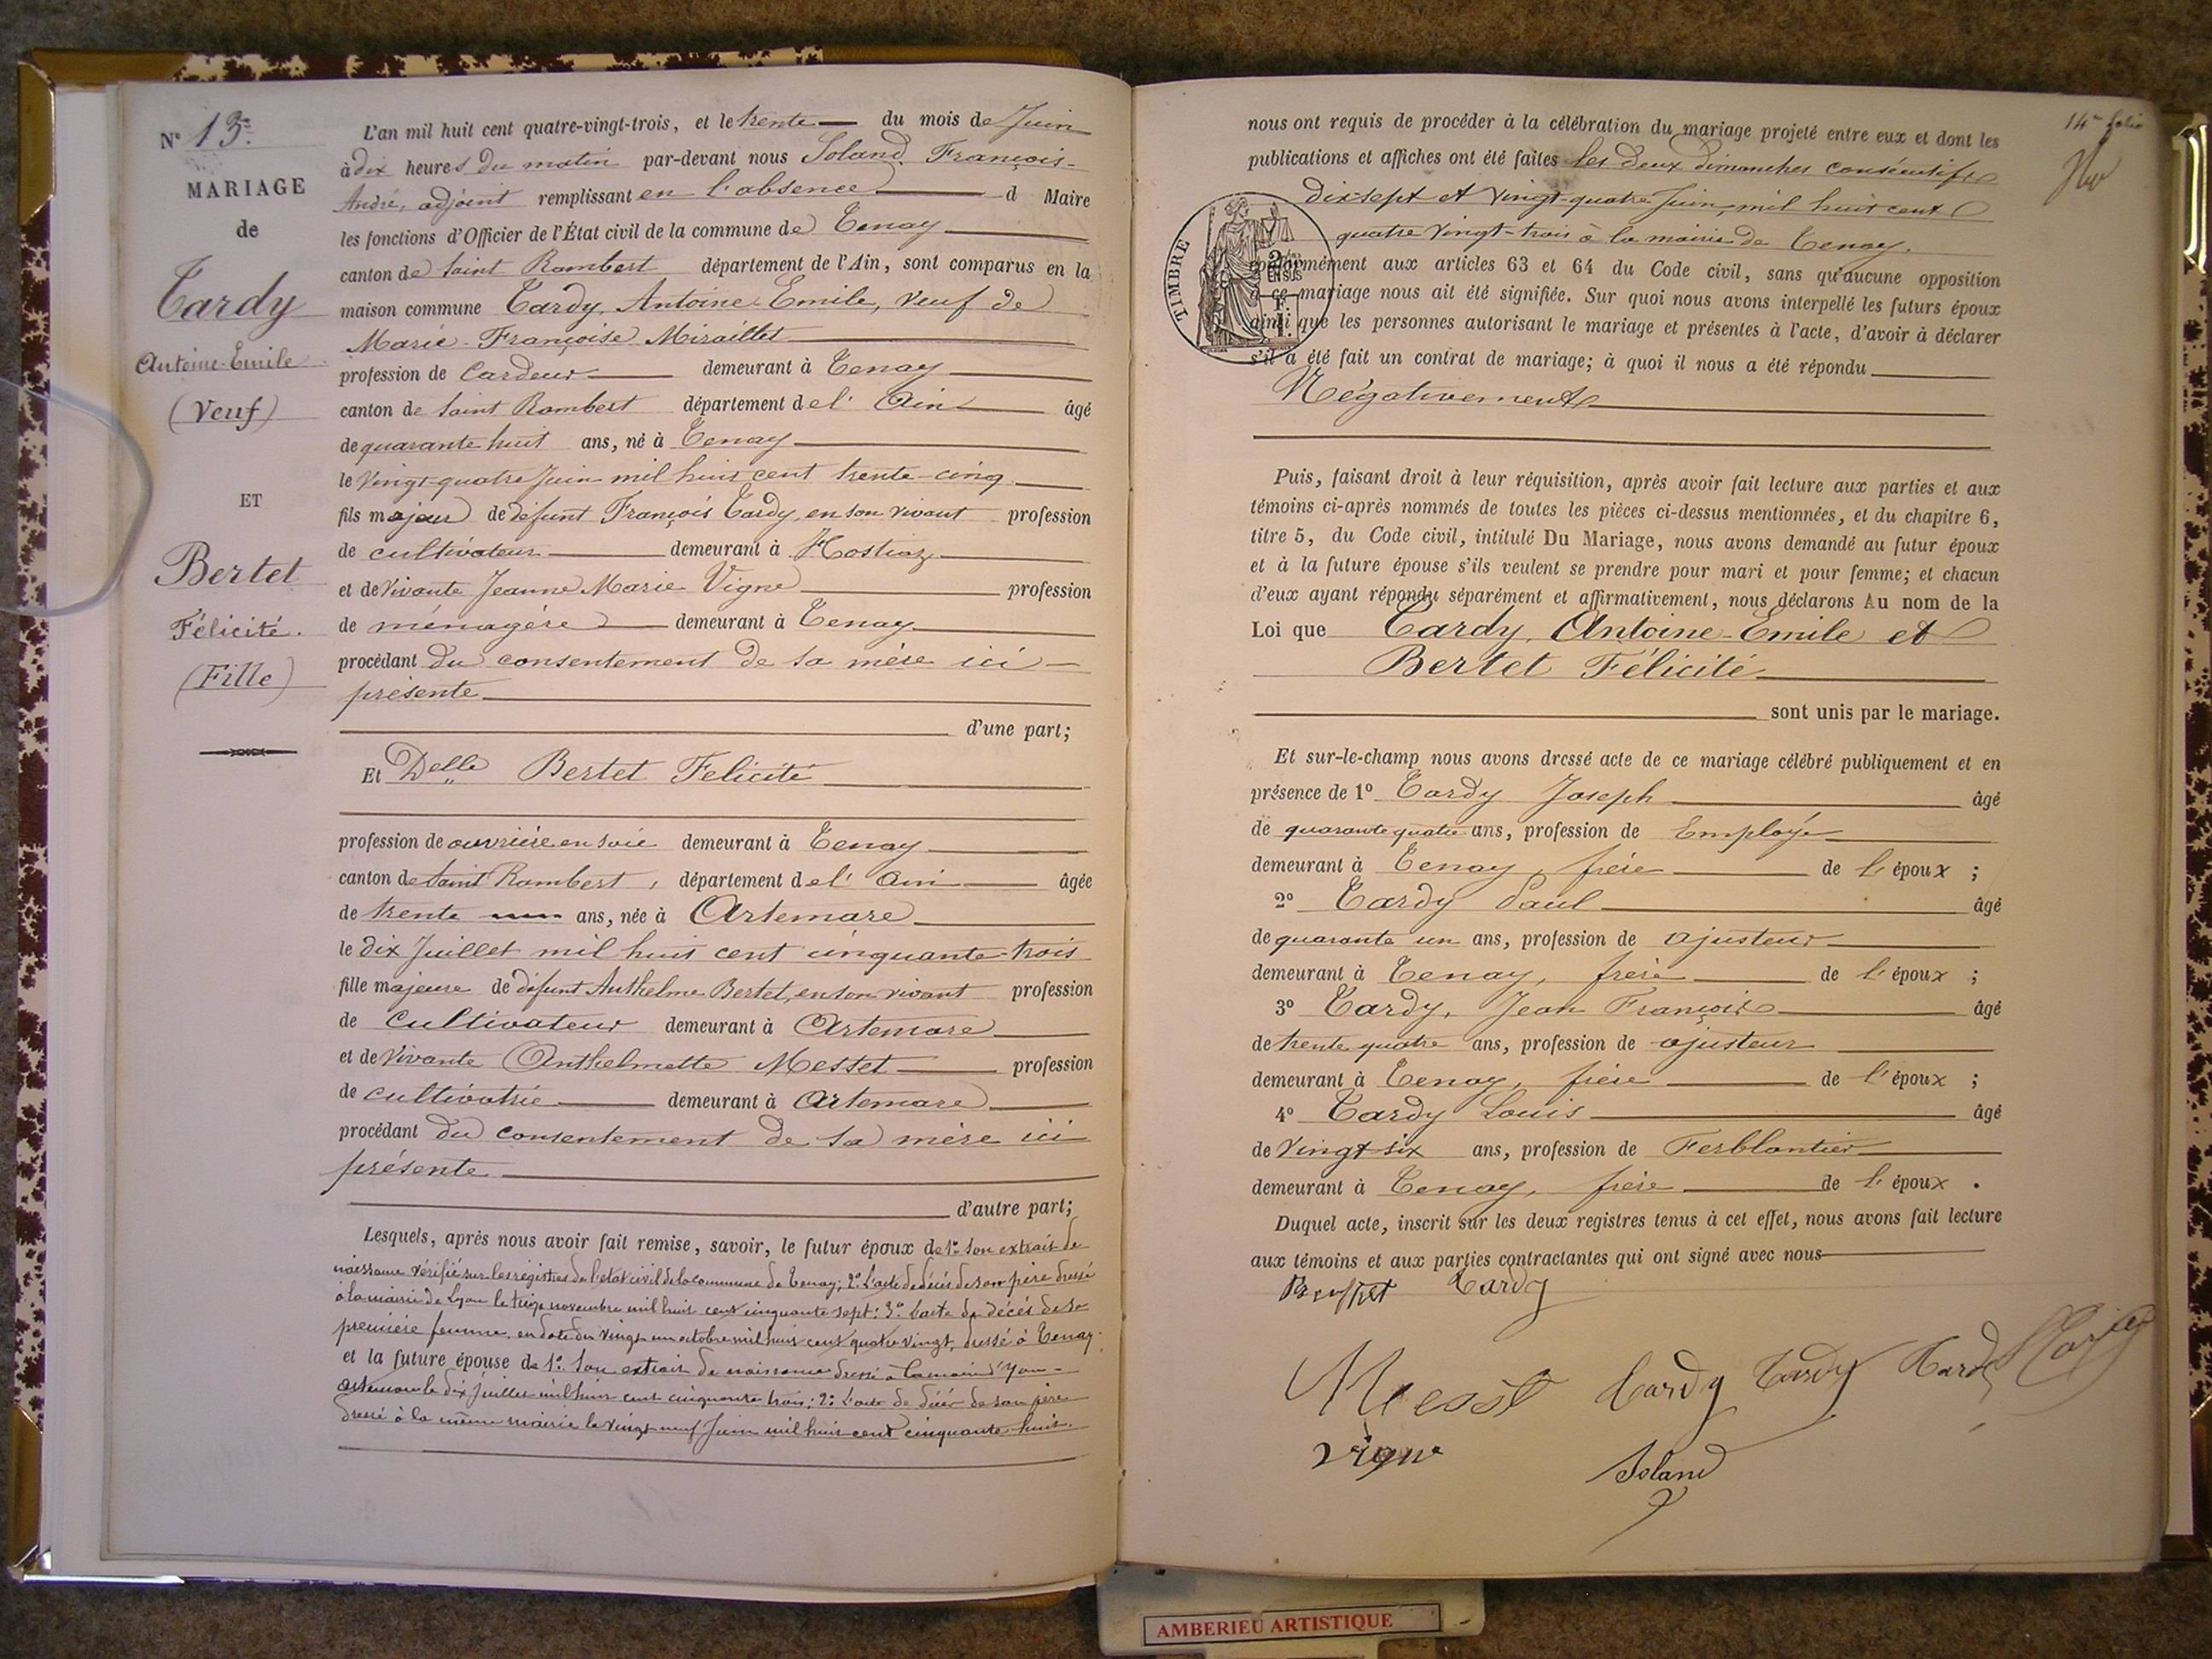 N° 13.
MARIAGE
de
Tardy
Antoine-Emile
(Veuf)
ET
Bertet
Félicité.
(Fille)
L'an mil huit cent quatre-vingt-trois, et le trente du mois de Juin
à dix heures du matin par-devant nous Soland, François-
André, adjoint remplissant en l'absence d Maire
les fonctions d'Officier de l'État civil de la commune de Tenay
canton de Saint Rambert département de l'Ain, sont comparus en la
maison commune Tardy, Antoine-Emile, veuf de
Marie-Françoise Miraillet
profession de Cardeur demeurant à Tenay
canton de Saint Rambert département de l' Ain âgé
de quarante huit ans, né à Tenay
le vingt-quatre Juin mil huit cent trente-cinq
fils majeur de défunt François Tardy, en son vivant profession
de cultivateur demeurant à Hostiaz
et de vivante Jeanne Marie Vigne profession
de ménagère demeurant à Tenay
procédant du consentement de sa mère ici
présente
d'une part;
Et Delle Bertet Felicité
profession de ouvrière en soie demeurant à Tenay
canton de Saint Rambert, département de l' Ain âgée
de trente ans, née à Artemare
le dix Juillet mil huit cent cinquante-trois
fille majeure de défunt Anthelme Bertet, en son vivant profession
de Cultivateur demeurant à Artemare
et de vivante Anthelmette Messet profession
de cultivatrice demeurant à Artemare
procédant du consentement de sa mère ici
présente
d'autre part;
Lesquels, après nous avoir fait remise, savoir, le futur époux de 1° Son extrait de
naissance vérifié sur les registres de l'état civil de la commune de Tenay; 2° L'acte de décès de son père dressé
à la mairie de Lyon le treize novembre mil huit cent cinquante sept: 3° L'acte de décès de sa
première femme, en date du vingt un octobre mil huit cent quatre vingt, dressé à Tenay.
et la future épouse de 1° Son extrait de naissance dressé à la mairie d'Yon-
Artemare le dix Juillet mil huit cent cinquante trois: 2° L'acte de décès de son père
dressé à la même mairie le vingt-neuf Juin mil huit cent cinquante-huit.
14e folio
nous ont requis de procéder à la célébration du mariage projeté entre eux et dont les
publications et affiches ont été faites les deux dimanches consécutifs
dix sept et vingt-quatre Juin, mil huit cent
quatre vingt-trois à la mairie de Tenay.
TIMBRE
conformément aux articles 63 et 64 du Code civil, sans qu'aucune opposition
à ce mariage nous ait été signifiée. Sur quoi nous avons interpellé les futurs époux
ainsi que les personnes autorisant le mariage et présentes à l'acte, d'avoir à déclarer
s'il a été fait un contrat de mariage; à quoi il nous a été répondu
Négativement
Puis, faisant droit à leur réquisition, après avoir fait lecture aux parties et aux
témoins ci-après nommés de toutes les pièces ci-dessus mentionnées, et du chapitre 6,
titre 5, du Code civil, intitulé Du Mariage, nous avons demandé au futur époux
et à la future épouse s'ils veulent se prendre pour mari et pour femme; et chacun
d'eux ayant répondu séparément et affirmativement, nous déclarons Au nom de la
Loi que Tardy, Antoine-Emile et
Bertet Félicité
sont unis par le mariage.
Et sur-le-champ nous avons dressé acte de ce mariage célébré publiquement et en
présence de 1° Tardy Joseph âgé
de quarante quatre ans, profession de Employé
demeurant à Tenay, frère de l'époux ;
2° Tardy Paul âgé
de quarante un ans, profession de ajusteur
demeurant à Tenay, frère de l'époux ;
3° Tardy, Jean François âgé
de trente quatre ans, profession de ajusteur
demeurant à Tenay, frère de l'époux ;
4° Tardy Louis âgé
de vingt six ans, profession de Ferblantier
demeurant à Tenay, frère de l'époux .
Duquel acte, inscrit sur les deux registres tenus à cet effet, nous avons fait lecture
aux témoins et aux parties contractantes qui ont signé avec nous
Tardy
Tardy Tardy Tardy
vigne
Soland
AMBERIEU ARTISTIQUE